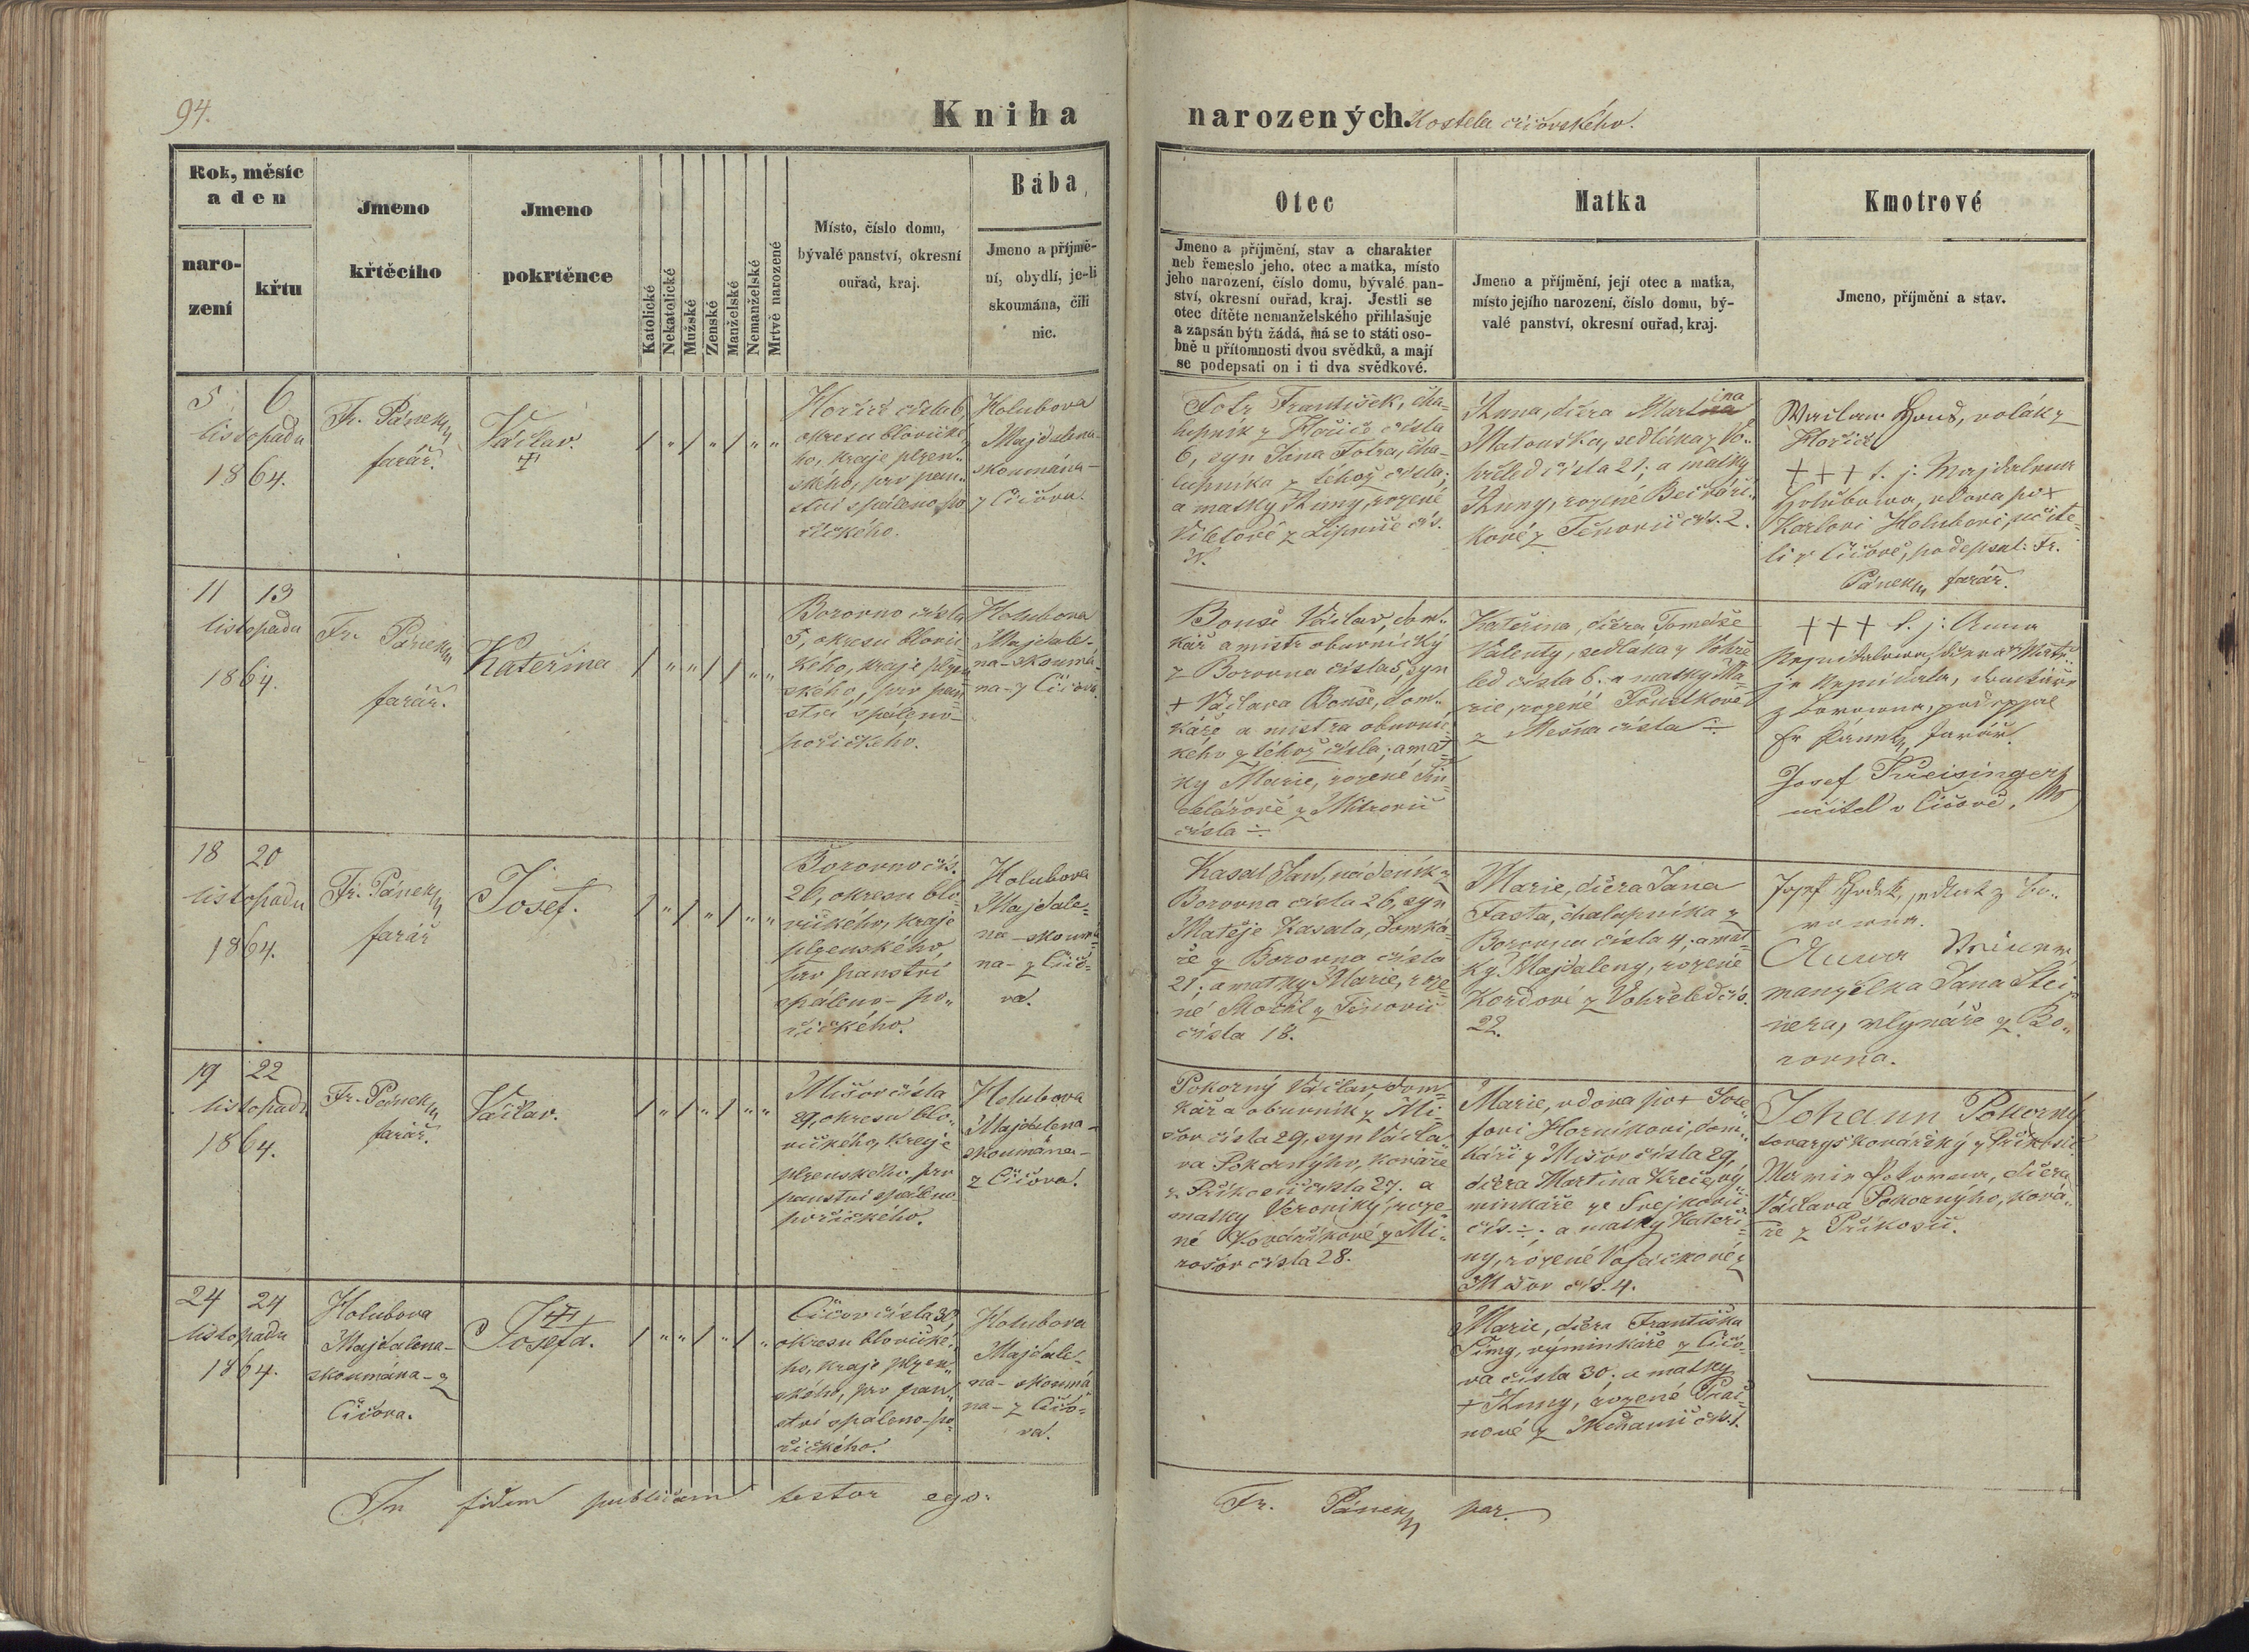 94.
Kniha
narozených. Kostela číčovského.
Rok, měsíc
a den
naro-
zení
křtu
Jmeno
křtěcího
Jmeno
pokrtěnce
Katolické
Nekatolické
Mužské
Ženské
Manželské
Nemanželské
Mrtvě narozené
Místo, číslo domu,
bývalé panství, okresní
ouřad, kraj.
Bába
Jmeno a příjmě-
ní, obydlí, je-li
skoumána, čili
nic.
Otec
Jmeno a příjmění, stav a charakter
neb řemeslo jeho. otec a matka, místo
jeho narození, číslo domu, bývalé pan-
ství, okresní ouřad, kraj. Jestli se
otec dítěte nemanželského přihlašuje
a zapsán býti žádá, má se to státi oso-
bně u přítomnosti dvou svědků, a mají
se podepsati on i ti dva svědkové.
Matka
Jmeno a příjmění, její otec a matka,
místo jejího narození, číslo domu, bý-
valé panství, okresní ouřad, kraj.
Kmotrové
Jmeno, příjmění a stav.
5 6
listopadu
1864.
Fr. Pánek
farář.
Václav.
Hořic čísla 6,
okresu blovické
ho, kraje plzen-
ského, prv pan-
ství spáleno-po
říčkého.
Holubova
Majdalena-
skoumána-
z Číčova.
Fotr František, cha-
lupník z Hořic čísla
6, syn Jana Fotra, cha-
lupníka z téhož čísla;
a matky Anny, rozené
z Lipnice čís.
Anna, dcera Martina
Matouška, sedláka z Vo-
hřeled čísla 21; a matky
Anny, rozené
kové z Těnovic čís. 2.
Václav z
Hořic
+++ t. j. Majdalena
Holubova, vdova po +
Karlovi Holubovi, učite-
li v Číčově, podepsal: Fr.
Pánek farář.
11 13
listopadu
1864.
Fr. Pánek
farář.
Kateřina
Borovno čísla
5, okresu blovic
kého, kraje plzen
ského, prv pan
ství spáleno-
poříčkého.
Holubova
Majdale-
na-skoumá-
na-z Číčova.
Bouše Václav, dom-
kář a mistr obuvnický
z Borovna čísla 5, syn
+ Václava Bouše, dom-
káře a mistra obuvnic-
kého z téhož čísla; a mat-
ky Marie, rozené Šin
delářové z Mitrovic
čísla ÷
Kateřina, dcera Tomáše
Valenty, sedláka z Vohře
led čísla 6. a matky Ma-
rie, rozené
z Mešna čísla ÷
+++ t. j: Anna
z Borovna, podepsal
Fr Pánek, farář.
Josef Kreisinger,
učitel v Číčově,
18 20
listopadu
1864.
Fr. Pánek
farář
Josef.
Borovno čís.
26, okresu blo-
vického, kraje
plzenského,
prv panství
spáleno-po-
říčkého.
Holubova
Majdale-
na-skoumá-
na-z Číčo-
va.
Kasal Jan, nádeník z
Borovna čísla 26, syn
Matěje Kasala, domká-
ře z Borovna čísla
21; a matky Marie, roze
né z Těnovic
čísla 18.
Marie, dcera Jana
Fasta, chalupníka z
Borovna čísla 4; a mat-
ky Majdaleny, rozené
Kordové z Vohřeled čís.
22.
Josef sedlák z Bo-
rovna.
Anna
manželka Jana Stei
nera, mlynáře z Bo-
rovna.
19 22
listopadu
1864.
Fr. Pánek
farář.
Václav.
Mišov čísla
29, okresu blo-
vického, kraje
plzenského, prv
panství spáleno
poříčkého.
Holubova
Majdalena-
skoumána-
z Číčova.
Pokorný Václav, dom-
kář a obuvník z Mi-
šov čísla 29, syn Václa-
va Pokorného, kováře
z Příkosic čísla 27. a
matky Veroniky, roze-
né Kovaříkové z Mi-
rošov čísla 28.
Marie, vdova po + Jose-
fovi Horníkovi, dom-
káři z Mišov čísla 29,
dcera Martina vý-
minkáře ze
čís. ÷. a matky Kateři-
ny, rozené z
Mišov čís. 4.
Johann Pokorný
tovaryš kovářský z Příkosic
Marie Pokorna, dcera
Václava Pokorného, ková-
ře z Příkosic.
24 24
listopadu
1864.
Holubova
Majdalena-
skoumána-z
Číčova.
Josefa.
Číčov čísla 30,
okresu blovické-
ho, kraje plzen-
ského, prv pan-
ství spáleno-po-
říčkého.
Holubova
Majdale-
na-skoumá
na-z Číčo-
va.
Marie, dcera Františka
výminkáře z Číčo-
va čísla 30. a matky
+ Anny, rozené
nové z čís. 1.
In fidem publicam testor ego:
Fr. Pánek par.